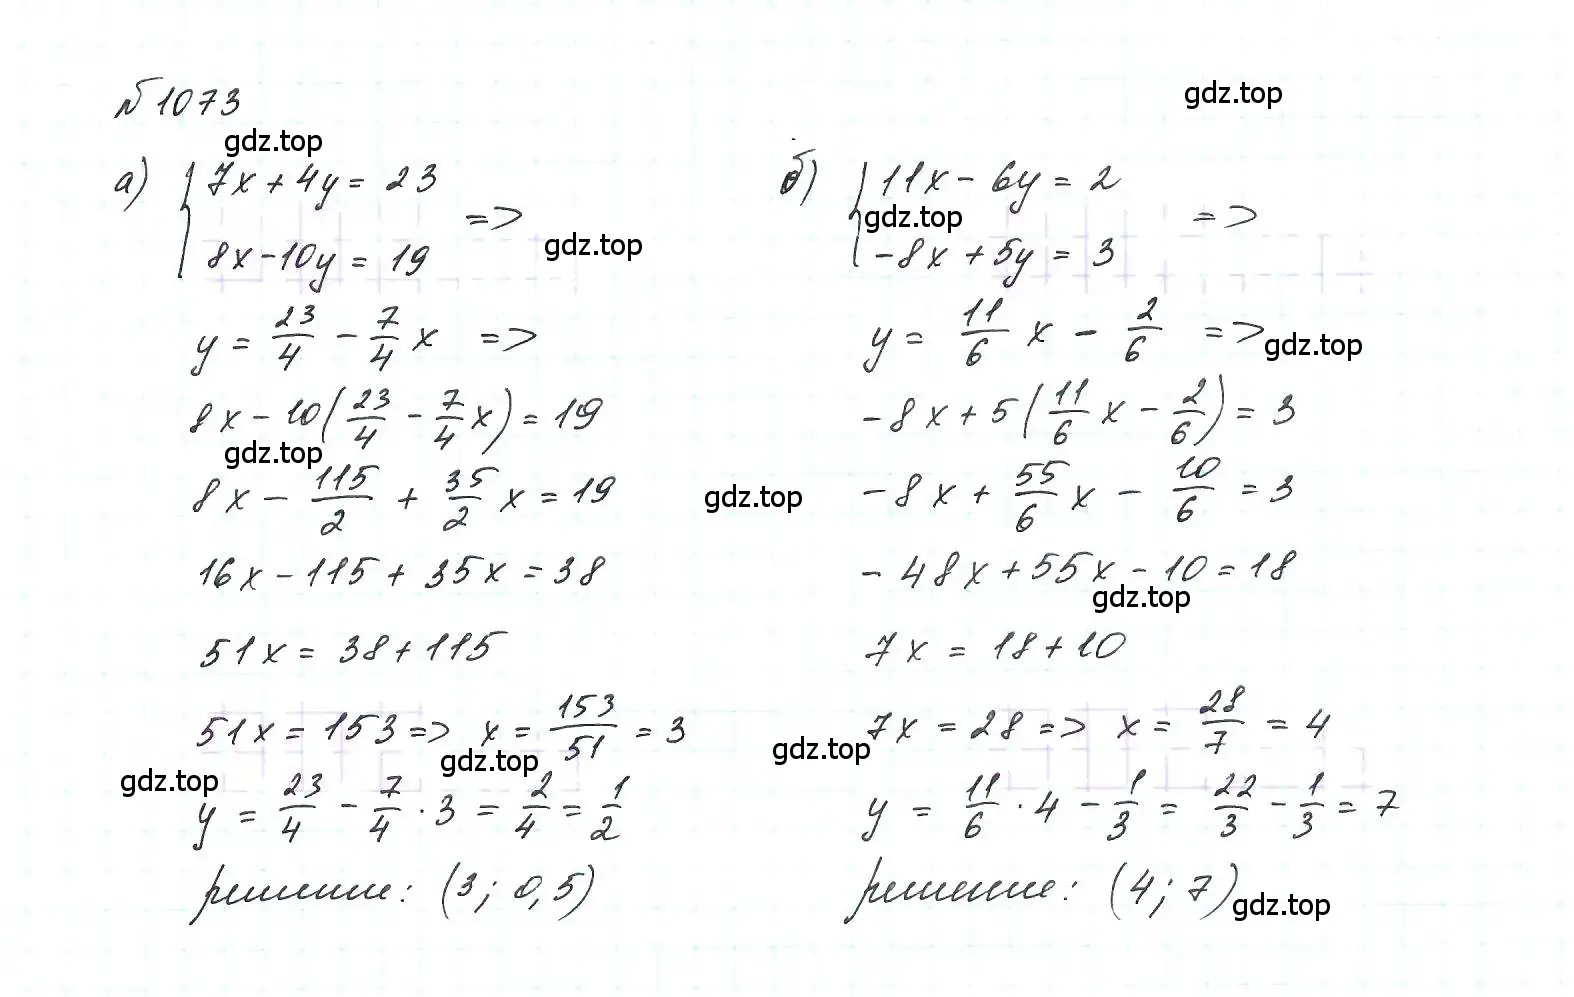 №1073
gdz.top
gdz.top
а) { 7x + 4y = 23
8x - 10y = 19 =>
gdz.top
y = 23/4 - 7/4 x =>
8x - 10(23/4 - 7/4 x) = 19
gdz.top
8x - 115/2 + 35/2 x = 19
gdz.top
16x - 115 + 35x = 38
51x = 38 + 115
51x = 153 => x = 153/51 = 3
gdz.top
gdz.top
y = 23/4 - 7/4 · 3 = 2/4 = 1/2
решение: (3; 0,5)
б) { 11x - 6y = 2
gdz.top
-8x + 5y = 3 =>
y = 11/6 x - 2/6 =>
gdz.top
-8x + 5(11/6 x - 2/6) = 3
-8x + 55/6 x - 10/6 = 3
-48x + 55x - 10 = 18
gdz.top
7x = 18 + 10
7x = 28 => x = 28/7 = 4
gdz.top
y = 11/6 · 4 - 1/3 = 22/3 - 1/3 = 7
решение: (4; 7)
gdz.top